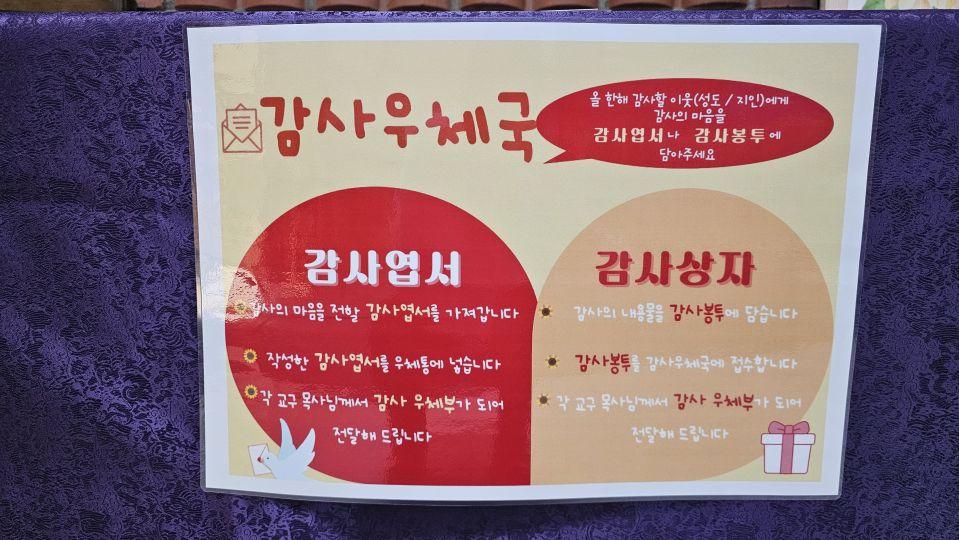 감사우체국
올 한해 감사할 이웃(성도 / 지인)에게
감사의 마음을
감사엽서나 감사봉투에
담아주세요
감사엽서
감사의 마음을 전할 감사엽서를 가져갑니다
작성한 감사엽서를 우체통에 넣습니다
각 교구 목사님께서 감사 우체부가 되어
전달해 드립니다
감사상자
감사의 내용물을 감사봉투에 담습니다
감사봉투를 감사우체국에 접수합니다
각 교구 목사님께서 감사 우체부가 되어
전달해 드립니다